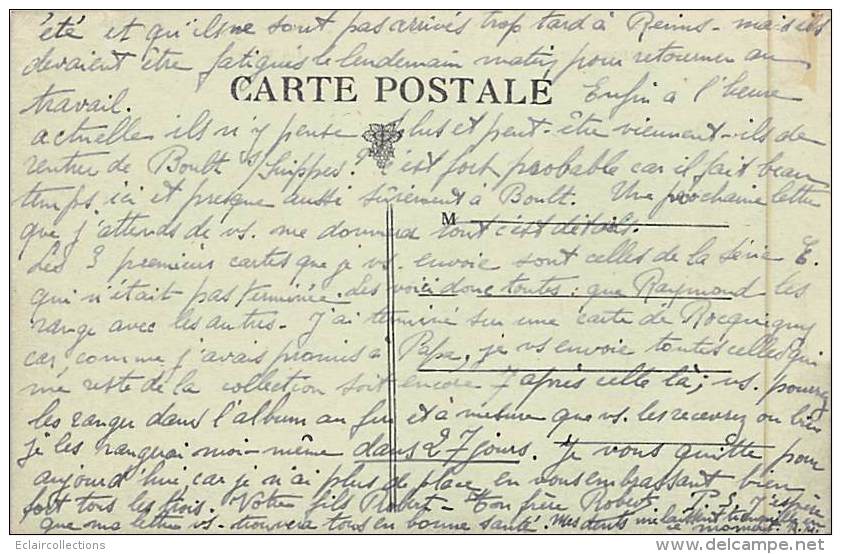 été et qu'ils ne sont pas arrivés trop tard à Reims - mais ils
devaient être fatigués le lendemain matin pour retourner au
travail.
CARTE POSTALE
Enfin à l'heure
actuelle ils n'y pense plus et peut-être viennent-ils de
rentrer de Boult s/ Suippes? C'est fort probable car il fait beau
temps ici et presque aussi sûrement à Boult. Une prochaine lettre
M
que j'attends de vs. me donnera tout c'est détails.
Les 3 premières cartes que je vs. envoie sont celles de la Série E.
qui n'était pas terminée. Les voici donc toutes : que Raymond les
range avec les autres - J'ai terminé sur une carte de Rocquigny
car comme j'avais promis à Papa, je vs envoie toutes celles qui
me reste de la collection soit encore 7 après celle là ; vs. pourrez
les ranger dans l'album au fur et à mesure que vs. les recevrez ou bien
je les rangerai moi-même dans 27 jours. Je vous quitte pour
aujourd'hui, car je n'ai plus de place, en vous embrassant bien
fort tous les trois. Votre fils Robert - Ton frère Robert P.S. J'espère
que ma lettre vs. trouvera tous en bonne santé. Mes dents me laissent ce moment.
Eclaircollections © delcampe.net